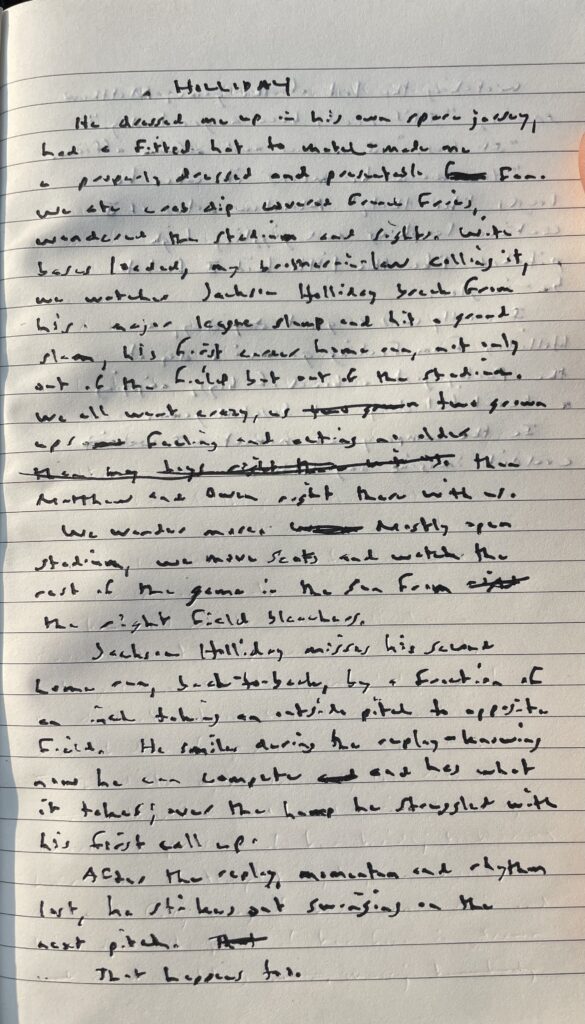 HOLLIDAY
He dressed me up in his own spare jersey,
had a fitted hat to match-made me
a properly dressed and presentable fan.
We ate crab dip covered French fries,
wandered the stadium and sights. With
bases loaded, my brother-in-law calling it,
we watched Jackson Holliday break from
his major league slump and hit a grand
slam, his first career home run, not only
out of the field but out of the stadium.
We all went crazy, us two grown
ups feeling and acting no older
than my boys right there with us. than
Matthew and Owen right there with us.
We wander more. Mostly open
stadium, we move seats and watch the
rest of the game in the sun from
the right field bleachers.
Jackson Holliday misses his second
home run, back-to-back, by a fraction of
an inch taking an outside pitch to opposite
field. He smiles during the replay-knowing
now he can compete and and has what
it takes; over the hump he struggled with
his first call up.
After the replay, momentum and rhythm
lost, he strikes out swinging on the
next pitch. That
That happens too.